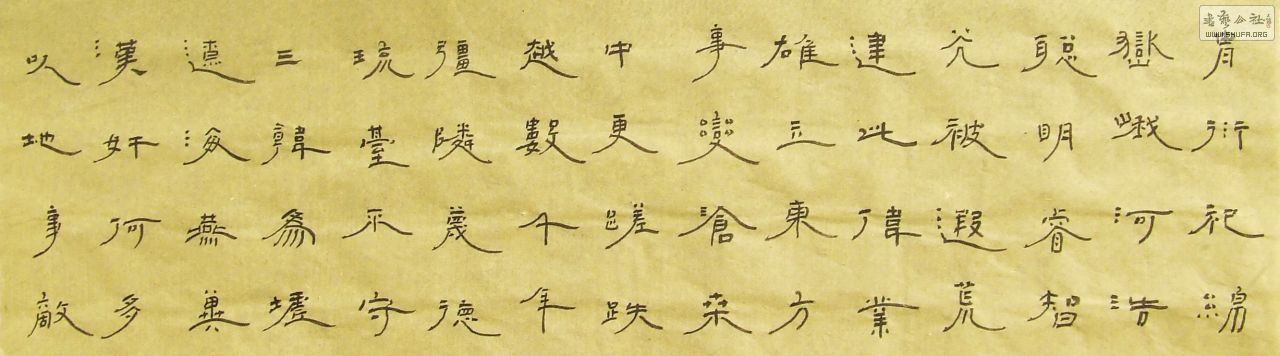 胄衍祀綿
嶽峨河浩
聰明睿智
光被遐荒
建此偉業
雄立東方
事變滄桑
中更蹉跌
越數千年
彊隣蔑德
琉臺不守
三韓為墟
遼海燕冀
漢奸何多
以地事敵
書藝公社
WWW.SHUFA.ORG